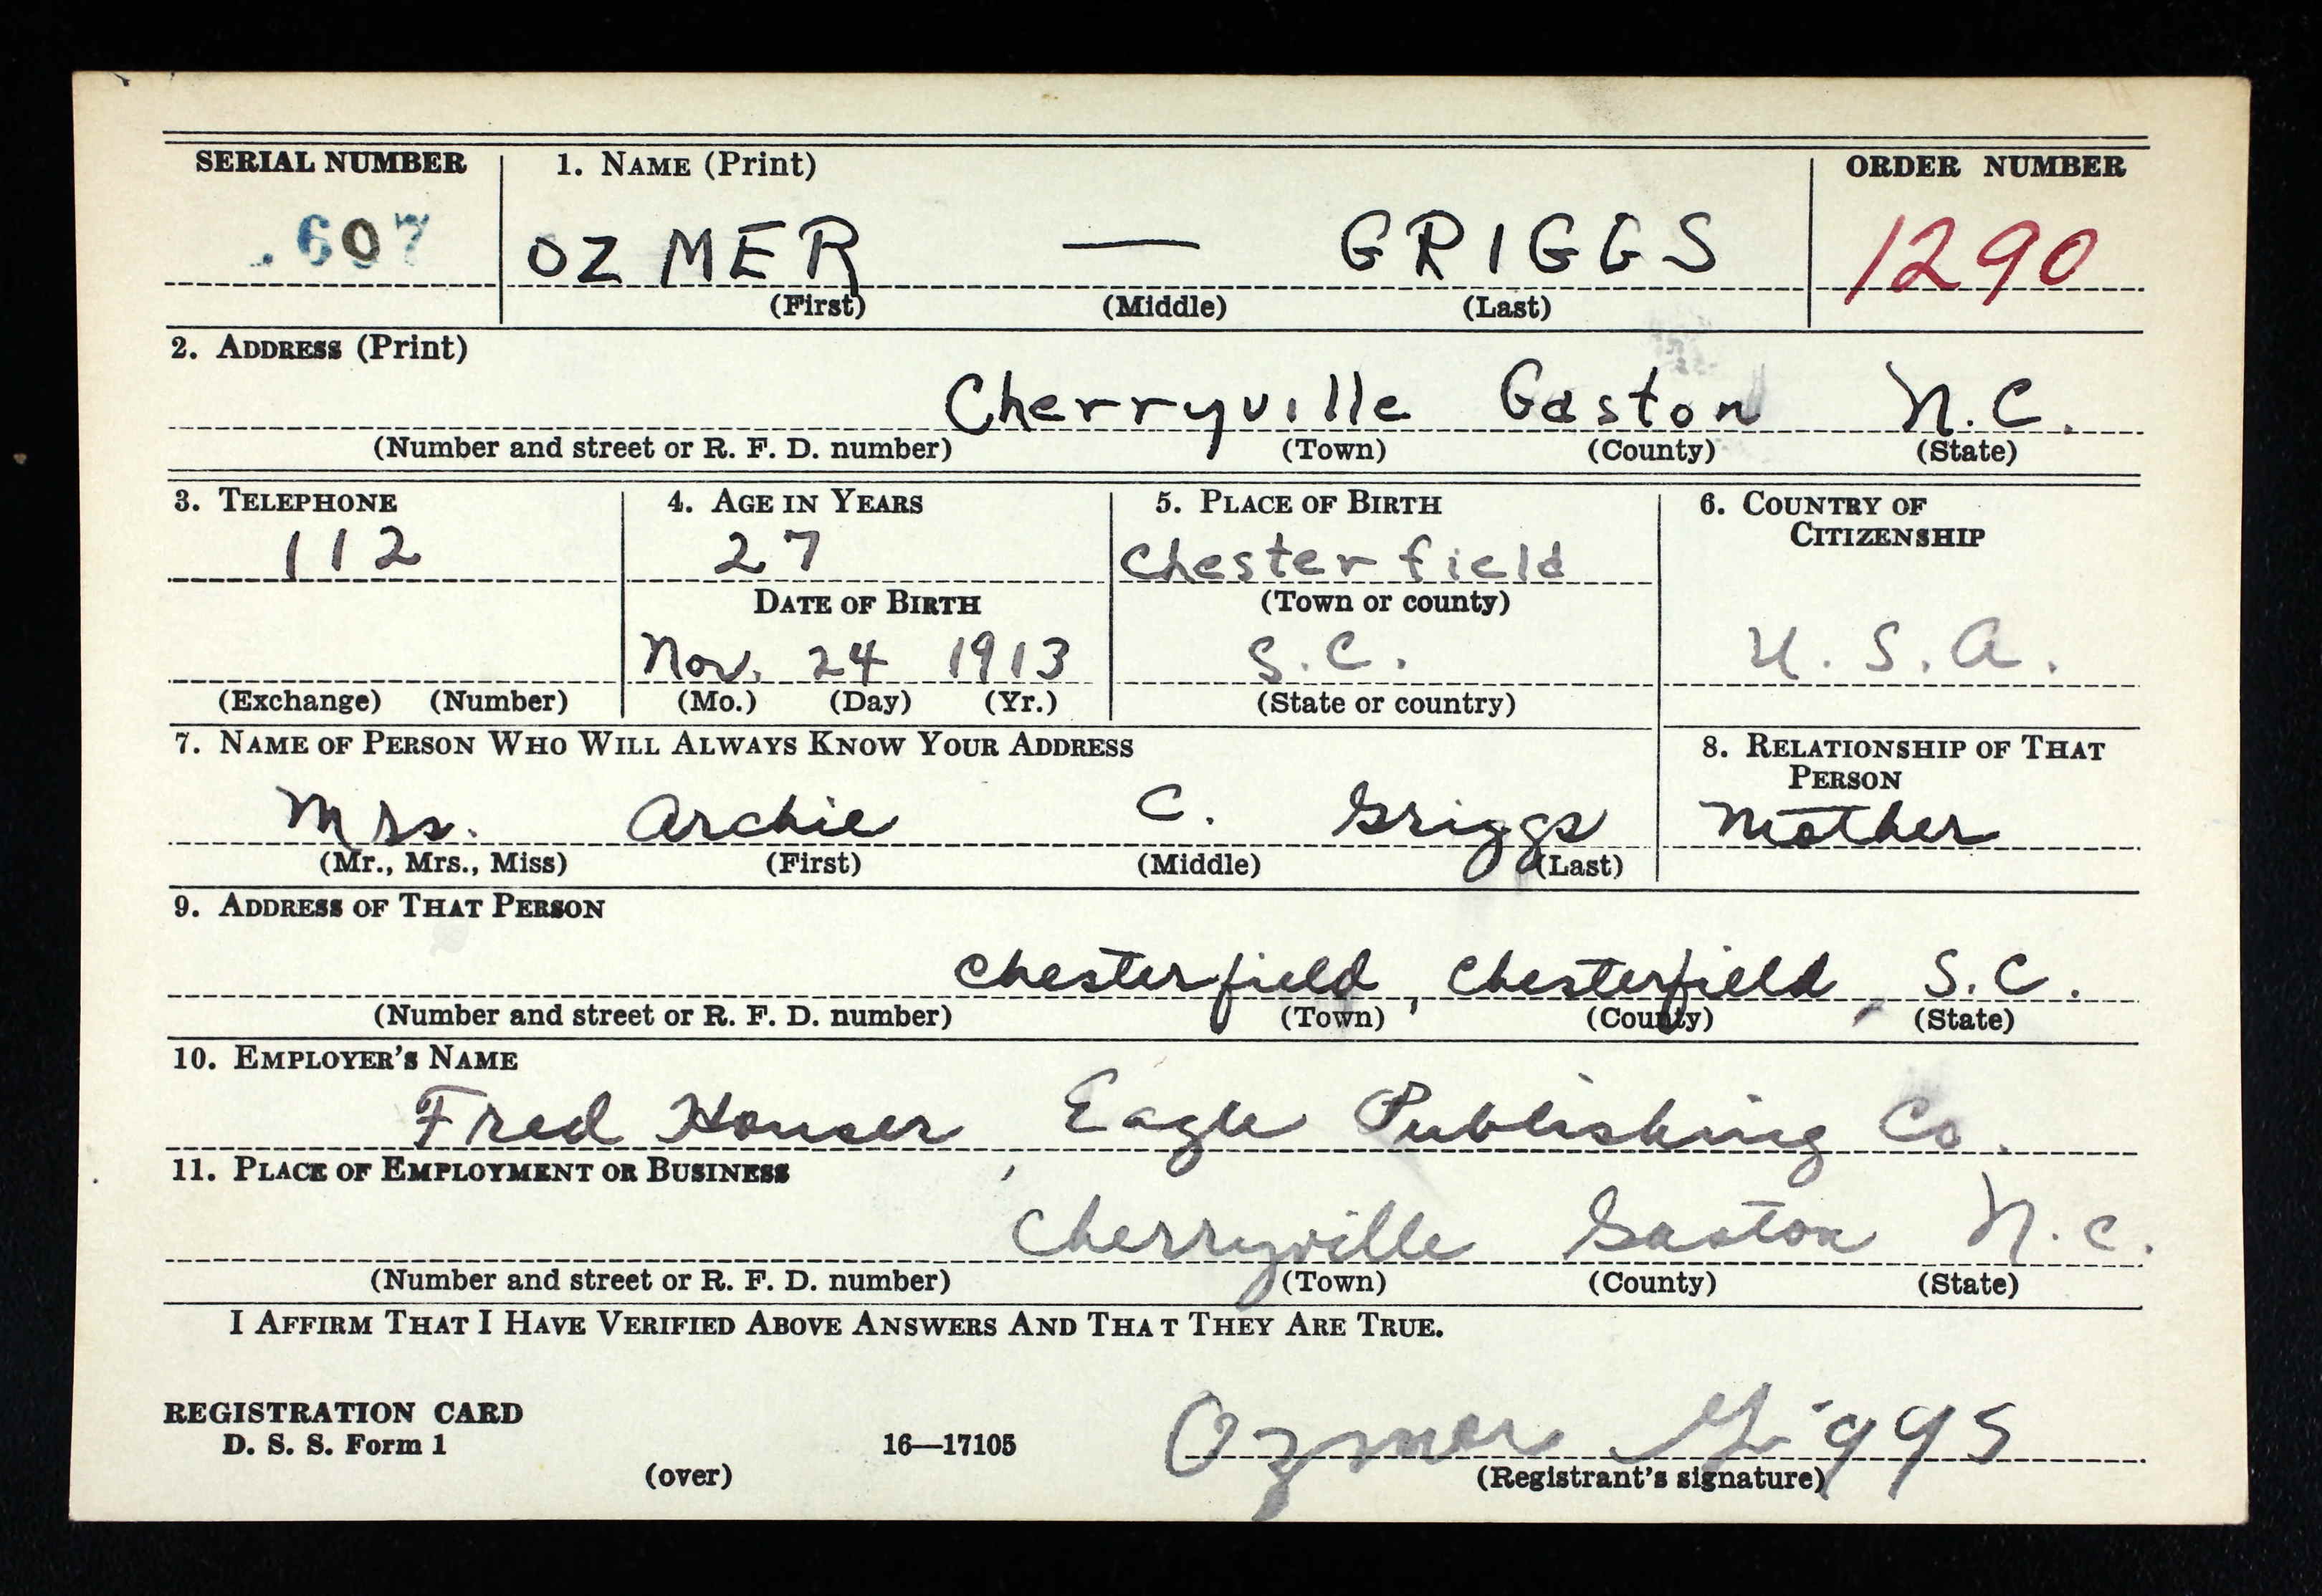 SERIAL NUMBER 1. NAME (Print) ORDER NUMBER
607 OZMER — GRIGGS 1290
(First) (Middle) (Last)
2. ADDRESS (Print)
Cherryville Gaston N.C.
(Number and street or R. F. D. number) (Town) (County) (State)
3. TELEPHONE 4. AGE IN YEARS 5. PLACE OF BIRTH 6. COUNTRY OF CITIZENSHIP
112 27 Chesterfield
DATE OF BIRTH (Town or county)
Nov. 24 1913 S.C. U.S.A.
(Exchange) (Number) (Mo.) (Day) (Yr.) (State or country)
7. NAME OF PERSON WHO WILL ALWAYS KNOW YOUR ADDRESS 8. RELATIONSHIP OF THAT PERSON
Mrs. Archie C. Griggs Mother
(Mr., Mrs., Miss) (First) (Middle) (Last)
9. ADDRESS OF THAT PERSON
Chesterfield, Chesterfield, S.C.
(Number and street or R. F. D. number) (Town) (County) (State)
10. EMPLOYER'S NAME
Fred Houser, Eagle Publishing Co.
11. PLACE OF EMPLOYMENT OR BUSINESS
Cherryville Gaston N.C.
(Number and street or R. F. D. number) (Town) (County) (State)
I AFFIRM THAT I HAVE VERIFIED ABOVE ANSWERS AND THAT THEY ARE TRUE.
REGISTRATION CARD
D. S. S. Form 1 16—17105 Ozmer Griggs
(over) (Registrant's signature)